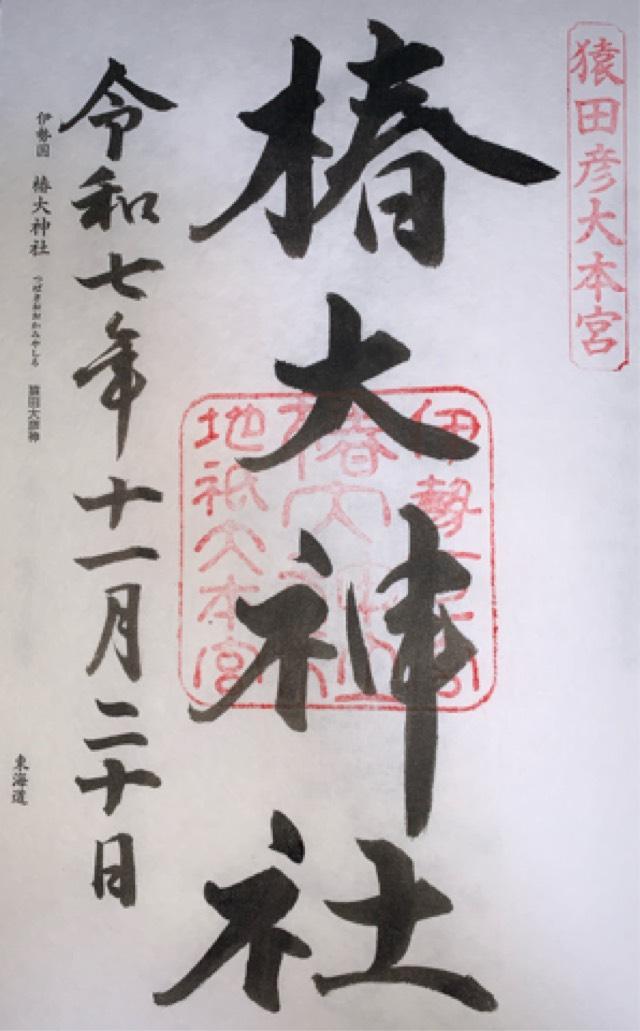 猿田彦大本宮
椿大神社
伊勢一宮
椿大神社
地祇大本宮
令和七年十一月二十日
伊勢國 椿大神社 つばきおおかみやしろ 猿田彦大神
東海道